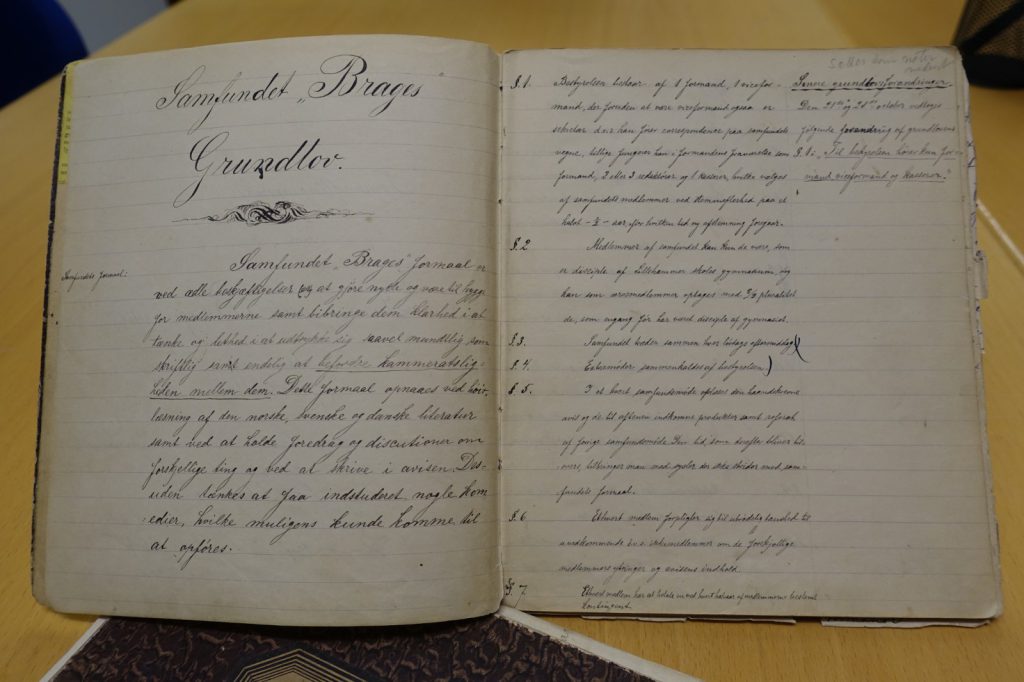 Samfundet „Brages"
Grundlov.
Samfundets formaal:
Samfundet „Brages" formaal er
ved ædle beskjæftigelser at gjöre nytte og være til hygge
for medlemmerne samt bibringe dem klarhed i at
tænke og lethed i at udtrykke sig saavel mundtlig som
skriftlig samt endelig at befordre kammeratslig-
heden mellem dem. Dette formaal opnaaes ved höit-
læsning af den norske, svenske og danske literatur
samt ved at holde foredrag og discutioner om
forskjellige ting og ved at skrive i avisen. Des-
uden tænkes at faa indstuderet nogle kom-
edier, hvilke muligens kunde komme til
at opföres.
§. 1. Bestyrelsen bestaar af 1 formand, 1 vicefor-
mand, der foruden at være viceformand ogsaa er
sekretær d.v.s. han förer correspondence paa samfundets
vegne, tillige fungerer han i formandens fraværelse som
formand, 2 eller 3 redaktörer og 1 kasserer, hvilke vælges
af samfundets medlemmer ved stemmeflerhed paa et
halvt – ½ – aar, for hvilken tid ny afstemning foregaar.
§. 2 Medlemmer af samfundet kan kun de være, som
er disciple af Lillehammer skoles gymnasium og
kan som æresmedlemmer optages med ⅔ pluralitet
de, som engang för har været disciple af gymnasiet.
§. 3. Samfundet træder sammen hver lördags eftermiddag
§. 4. Extramöder sammenkaldes af bestyrelsen
§. 5. I et hvert samfundsmöde oplæses den haandskrevne
avis og de til aftenen indkomne produkter samt referat
af forrige samfundsmöde. Den tid, som derefter bliver til-
overs, tilbringer man med sysler der ikke strider mod sam-
fundets formaal.
§. 6 Ethvert medlem forpligter sig til ubrödelig taushed til
uvedkommende d.v.s. ikkemedlemmer om de forskjellige
medlemmers ytringer og avisens indhold.
§. 7. Ethvert medlem har at betale en ved hvert halvaar af medlemmerne bestemt
kontingent
Senere grundlovsforandringer
Den 21de og 28de october vedtoges
fölgende forandring af grundlovens
§. 1: „Til bestyrelsen hörer kun for-
mand, viceformand og kasserer."